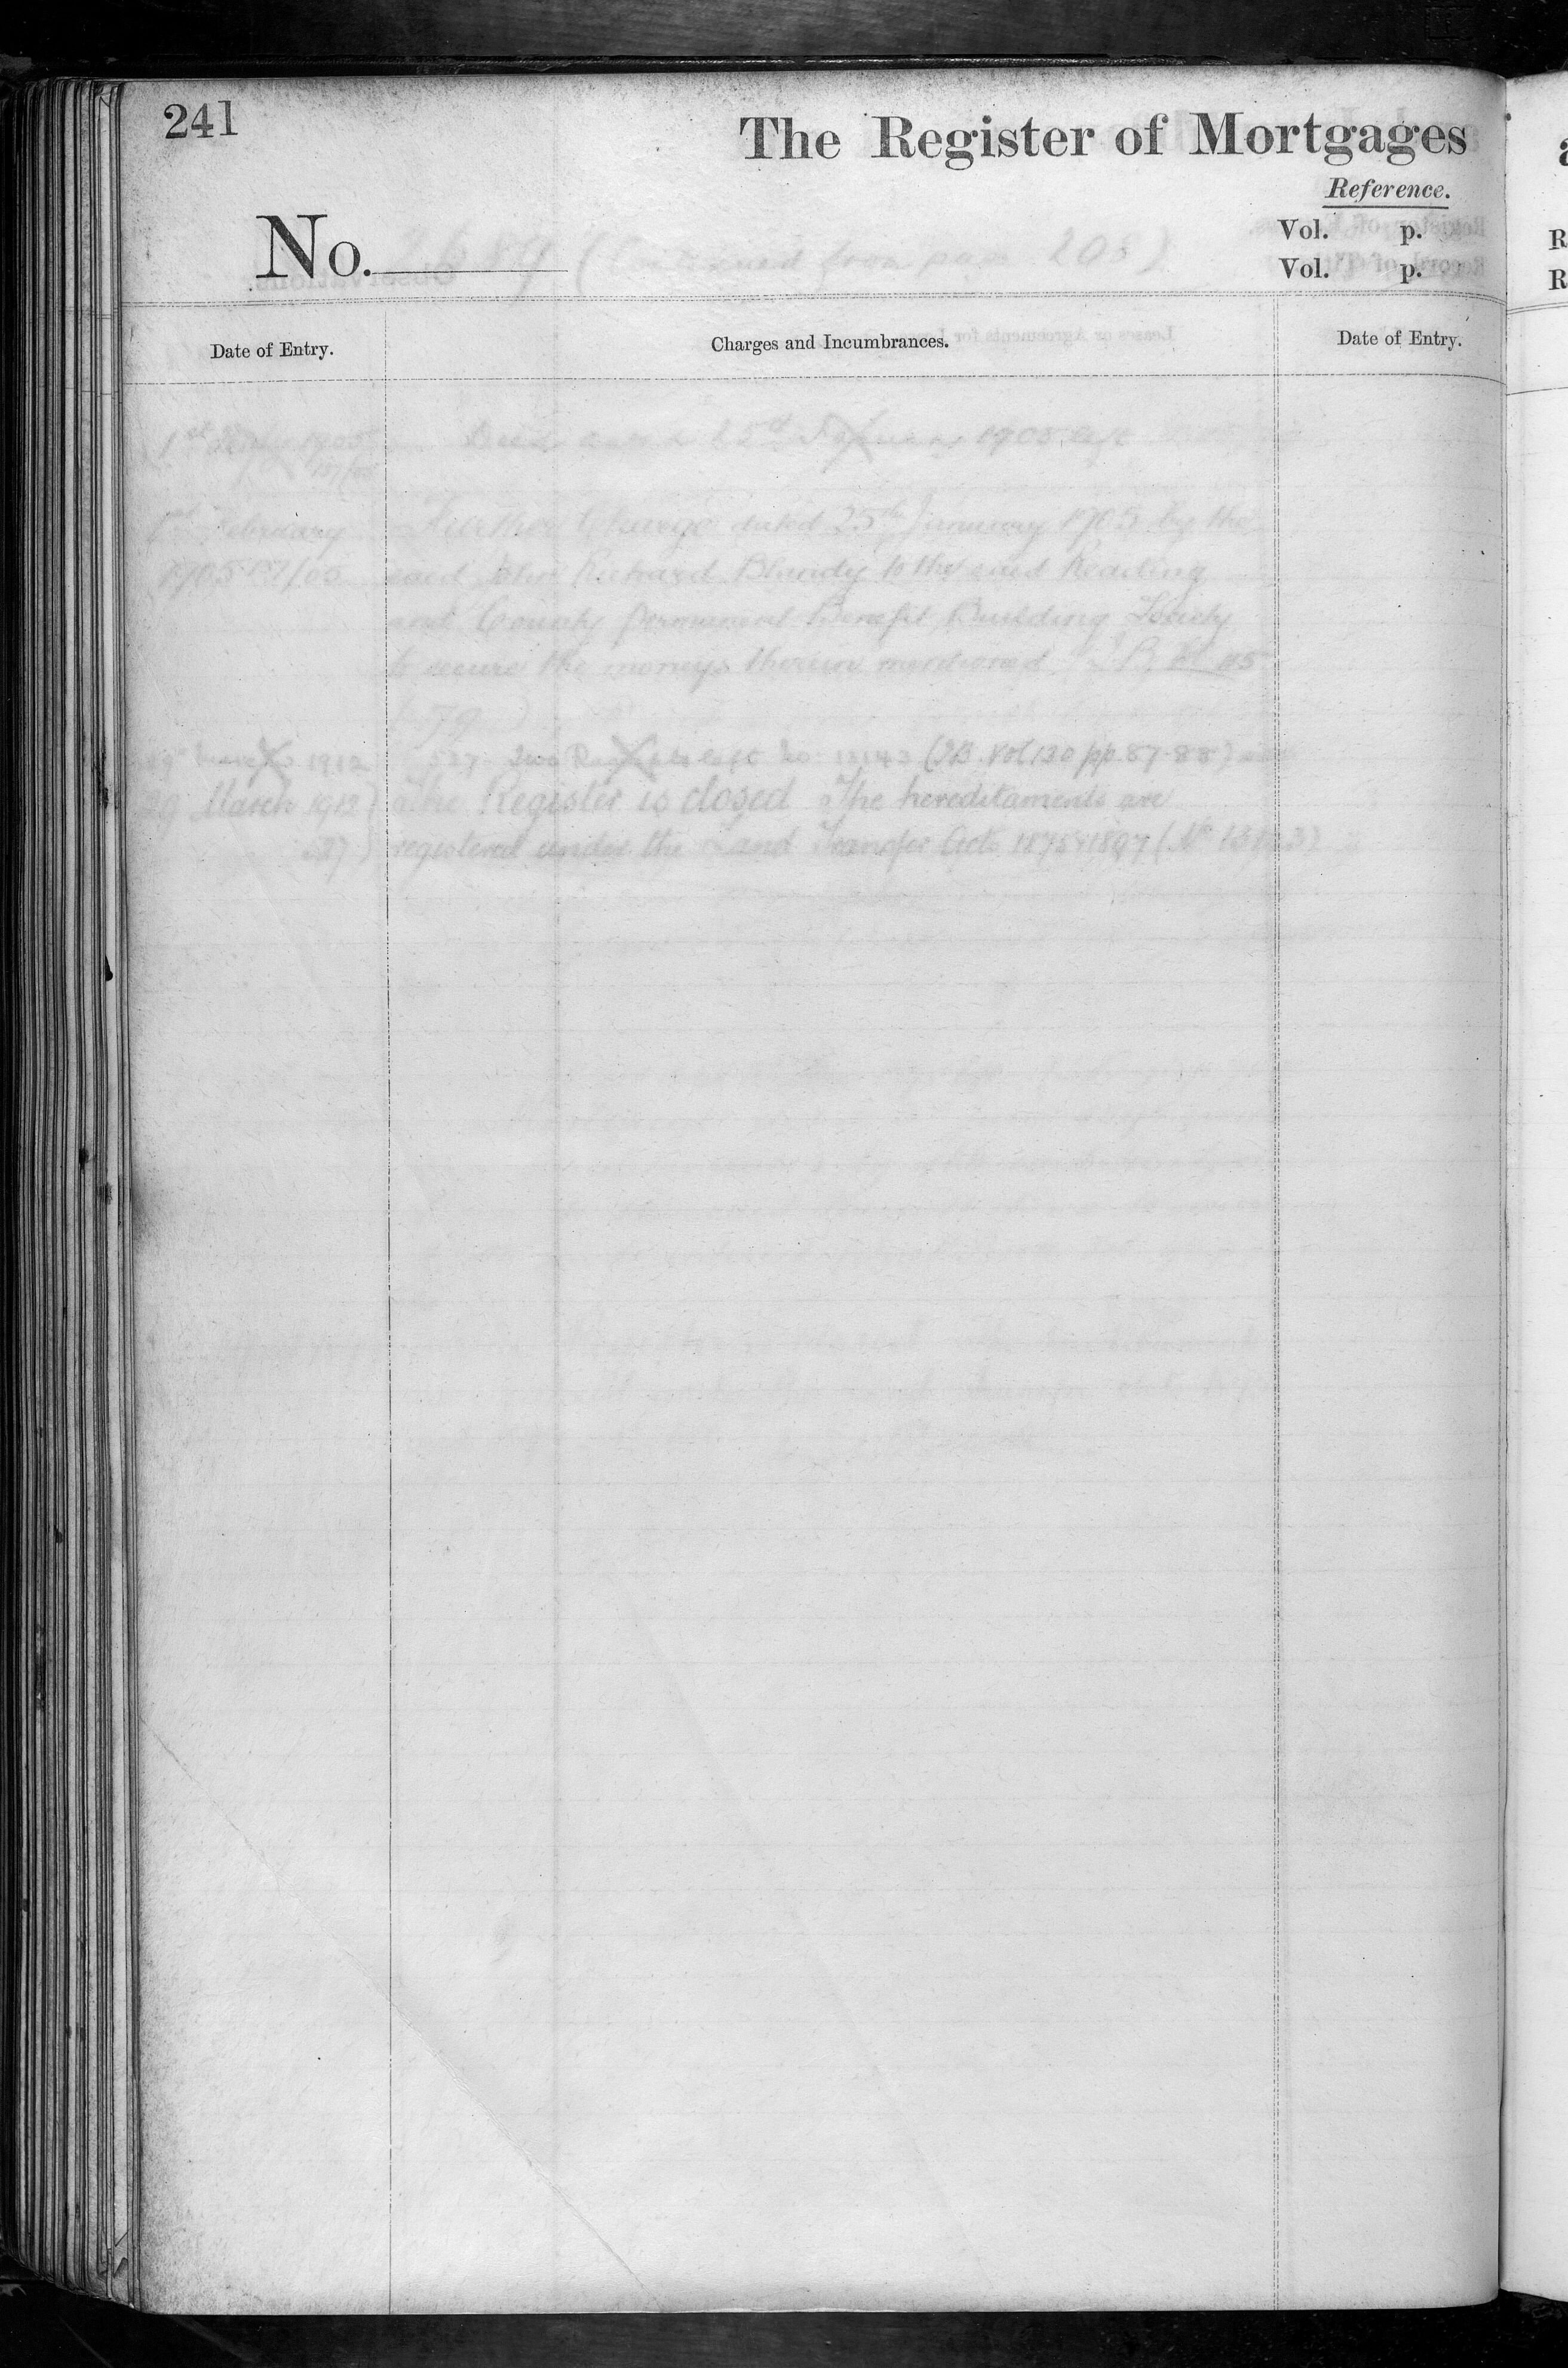 241
The Register of Mortgages
Reference.
No. 2689 (Continued from page 208)
Vol. p.
Vol. p.
Date of Entry.
Charges and Incumbrances.
Date of Entry.
1st 1905 Deed dated 25th January 1905 left
137/05
1st February Further Charge dated 25th January 1905 by the
1905 137/05 said John Richard Blandy to the said Reading
and County Permanent Benefit Building Society
to secure the moneys therein mentioned
79
March 1912 527 left No 13143 (IB. Vol 130 pp. 87-88)
29 March 1912) The Register is closed The hereditaments are
527) registered under the Land Transfer Acts 1875 & 1897 (No 13143)